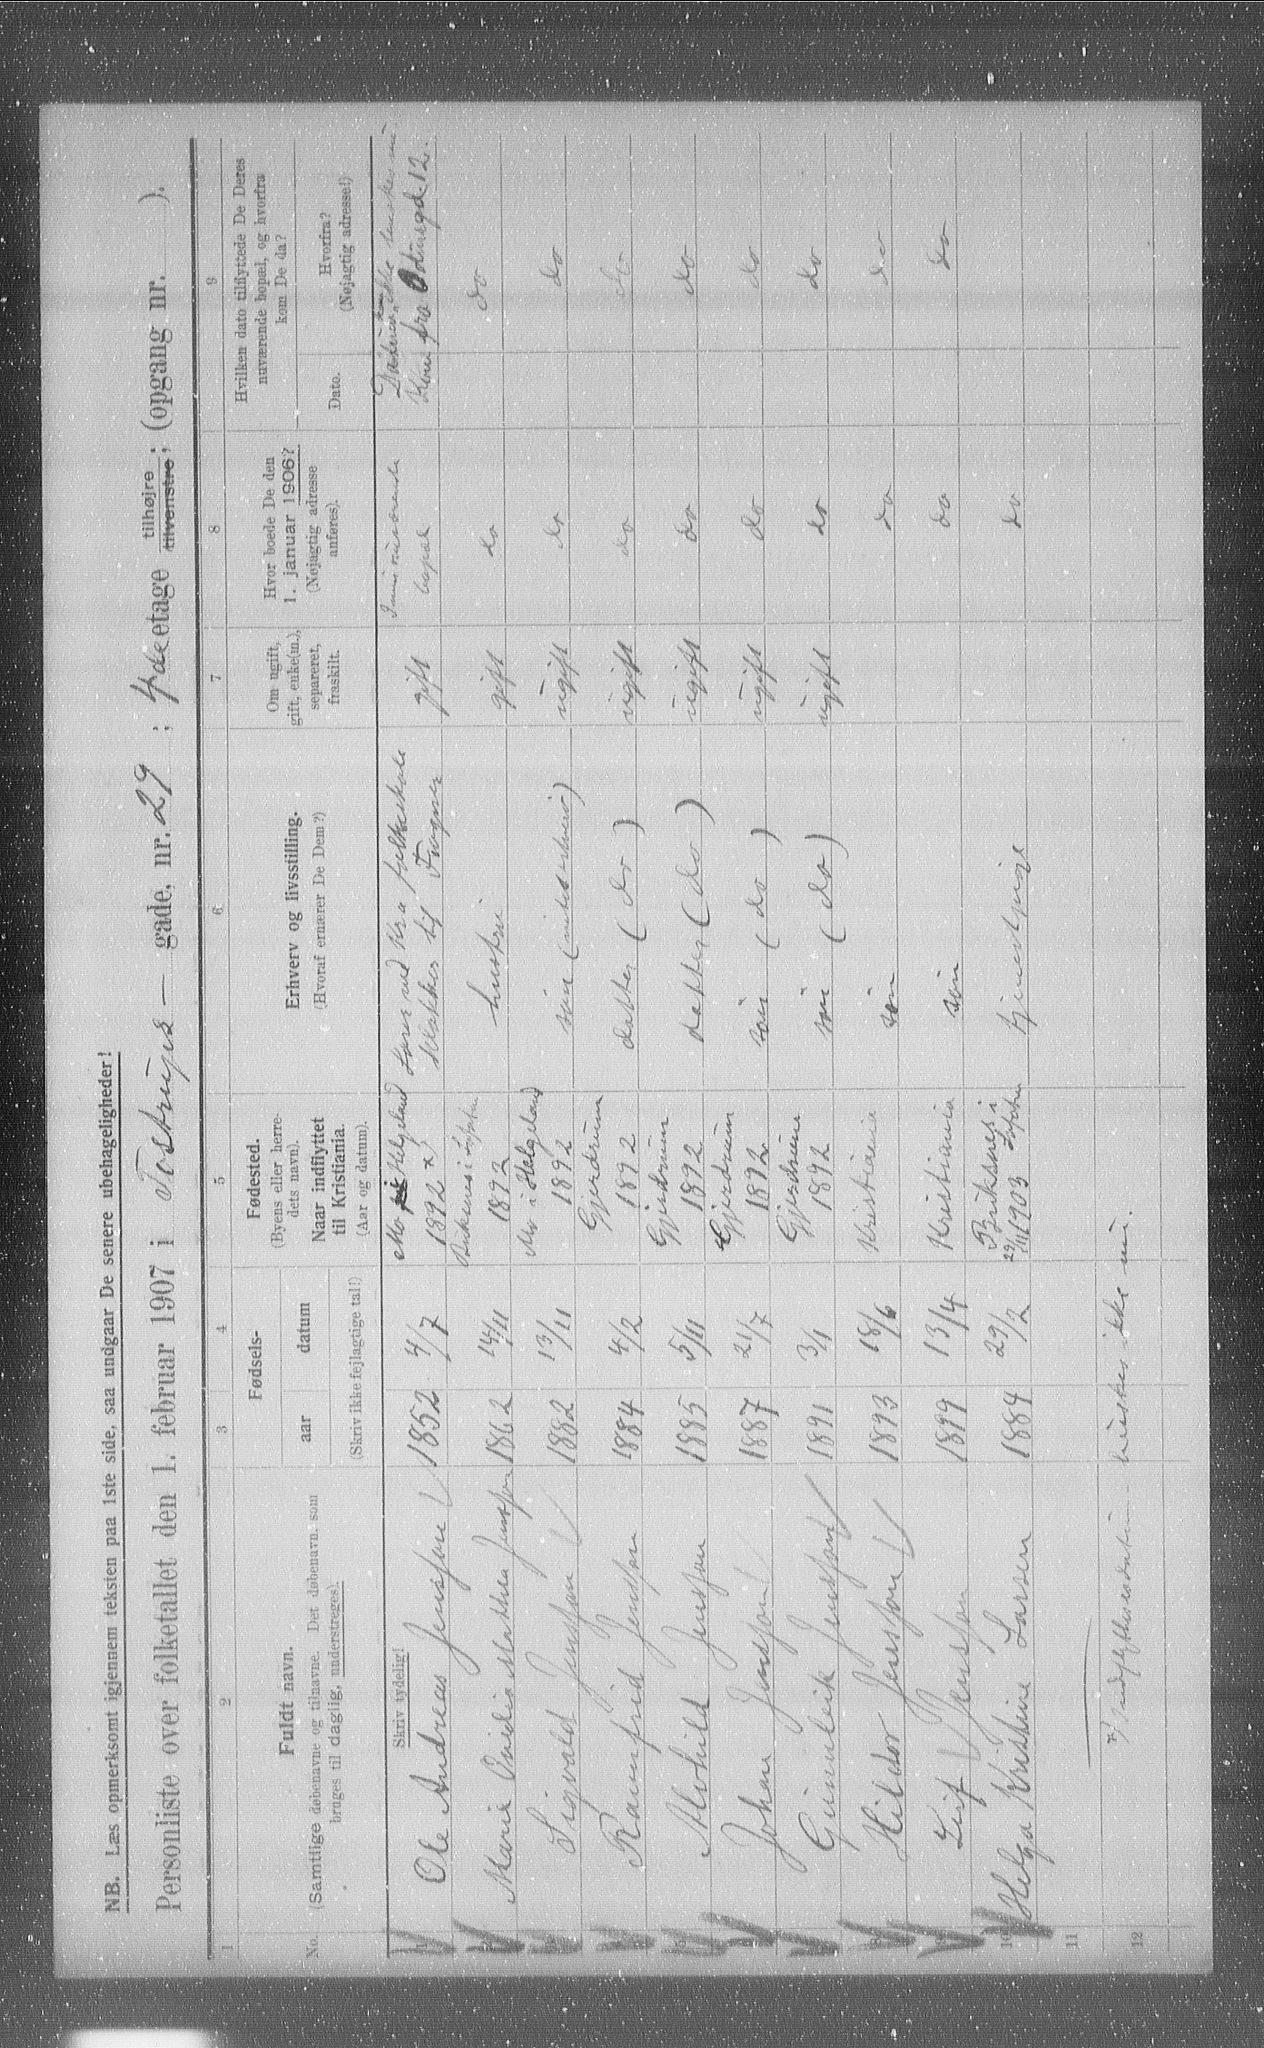 NB. Læs opmerksomt igjennem teksten paa 1ste side, saa undgaar De senere ubehageligheder!
Personliste over folketallet den 1. februar 1907 i Tostrups — gade, nr. 29 ; 4de etage tilhøjre tilvenstre ; (opgang nr. ).
1 2 3 4 5 6 7 8 9
No.
Fuldt navn.
(Samtlige døbenavne og tilnavne. Det døbenavn, som
bruges til daglig, understreges).
Fødsels-
aar datum
(Skriv ikke fejlagtige tal!)
Fødested.
(Byens eller herre-
dets navn).
Naar indflyttet
til Kristiania.
(Aar og datum).
Erhverv og livsstilling.
(Hvoraf ernærer De Dem?)
Om ugift,
gift, enke(m.),
separeret,
fraskilt.
Hvor boede De den
1. januar 1906?
(Nøjagtig adresse
anføres).
Hvilken dato tilflyttede De Deres
nuværende bopæl, og hvorfra
kom De da?
Dato.
Hvorfra?
(Nøjagtig adresse!)
Skriv tydelig!
Ole Andreas Jenssøn 1852 4/7 Mo Helgeland 1892 x) Lærer ved Kra folkeskole gift I nuværende bopæl
Kom fra Odinsgd. 12.
Marie Mathea Jenssøn 1862 15/11 1892 hustru gift do do
Sigvald Jenssøn 1882 13/11 Mo i Helgeland 1892 søn ugift do do
Rannfrid Jenssøn 1884 4/2 Gjerdrum 1892 datter ( do ) ugift do do
Alvhild Jenssøn 1885 5/11 Gjerdrum 1892 datter ( do ) ugift do do
Johan Jenssøn 1887 21/7 Gjerdrum 1892 søn ( do ) ugift do do
Gunnleik Jenssøn 1891 3/1 Gjerdrum 1892 søn ( do ) ugift do do
Hildor Jenssøn 1893 18/6 Kristiania søn do do
Leif Jenssøn 1899 13/4 Kristiania søn do do
10 Helga Kristine Larsen 1884 29/2 1903 tjenestpige do
11
12
x) Indflytningsdatum huskes ikke nu.